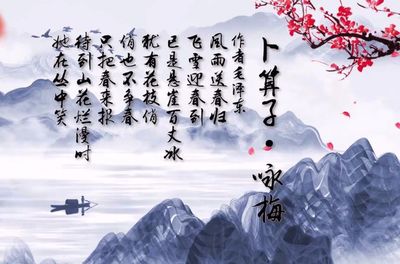 卜算子·咏梅
作者毛泽东
风雨送春归
飞雪迎春到
已是悬崖百丈冰
犹有花枝俏
俏也不争春
只把春来报
待到山花烂漫时
她在丛中笑